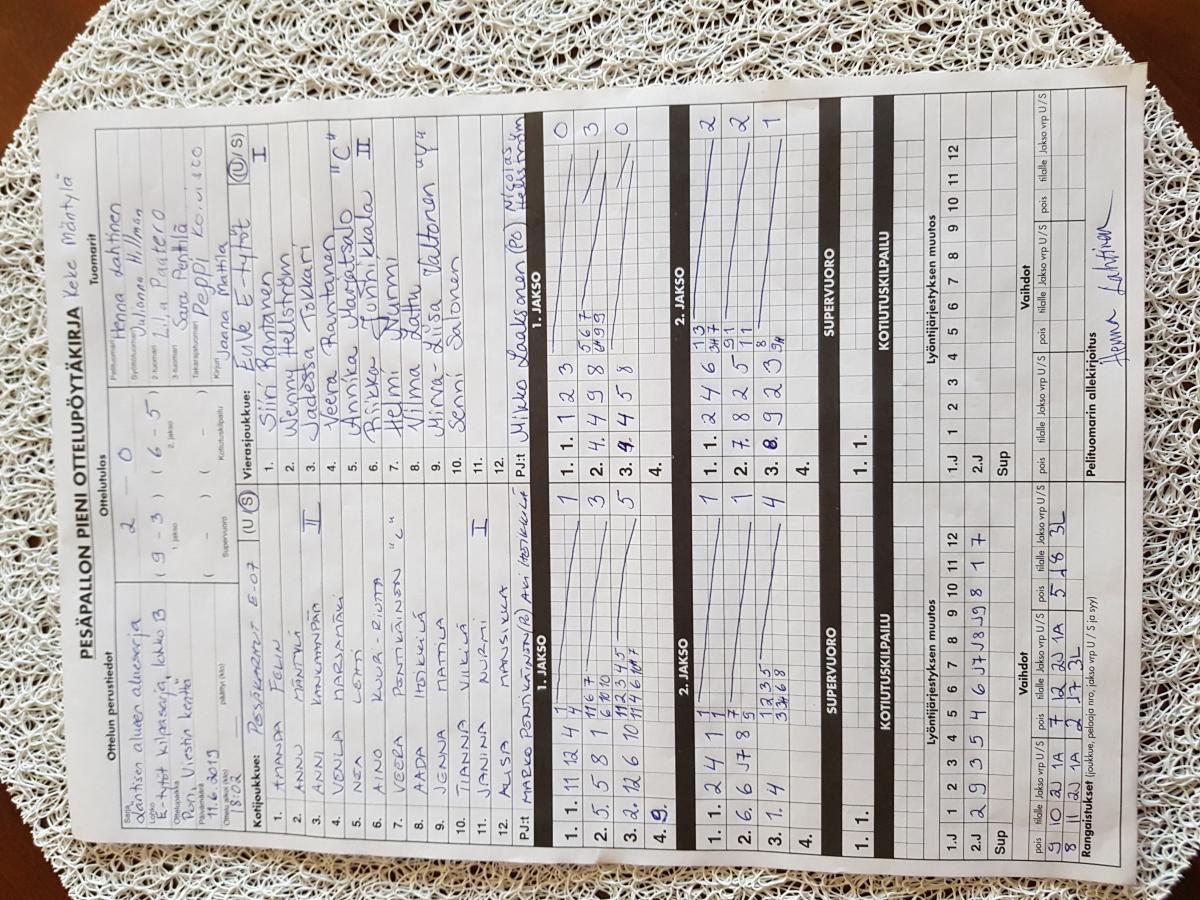 PESÄPALLON PIENI OTTELUPÖYTÄKIRJA Keke Mäntylä
Ottelun perustiedot
Sarja
Läntisen alueen aluesarja
Lohko
E-tytöt kilpasarja, lohko B
Ottelupaikka
Pori, Viestin kenttä
Päivämäärä
11.6.2019
Ottelu alkoi (klo)
18:02
päättyi (klo)
Ottelutulos
2 – 0
( 9 – 3 ) ( 6 – 5 )
1. jakso 2. jakso
( – ) ( – )
Supervuoro Kotiutuskilpailu
Tuomarit
Pelituomari Henna Lahtinen
Syöttötuomari Julianna Hillman
2-tuomari
3-tuomari Sara Penttilä
Takarajatuomari Peppi Koivisto
Kirjuri Jaana Mattila
Kotijoukkue: PESÄKARHUT E-07 (U/S)
1. AMANDA FELIN
2. ANNU MÄNTYLÄ
3. ANNI KANKAANPÄÄ II
4. VENLA MARJAMÄKI
5. NEA LEHTI
6. AINO KUURI-RIUTTA
7. VEERA PONTKÄINEN "C"
8. AADA HOIKKILÄ
9. JENNA MATTILA
10. TIANNA VIKILÄ
11. JANINA NURMI I
12. ALISA MANSIKKA
PJ:t MARKO PONTKÄINEN (P) AKI HOIKKILÄ
Vierasjoukkue: EuVe E-tytöt (U/S)
1. Siiri Rantanen I
2. Wenny Hellström
3. Jadessa Tokkari
4. Veera Rantanen "C"
5. Annika Marjatsalo
6. Riikka Junnikkala II
7. Helmi Nurmi
8. Vilma Lattu
9. Minna-Liisa Valtonen "V"
10. Senni Salonen
11.
12.
PJ:t Mikko Laaksonen (PO) Nicolas Hellström
1. JAKSO
1. 1. 11 12 4 1 4 1
2. 5. 5 8 1 11 6 7 6 10 10 3
3. 2. 12 6 10 11 2 3 4 5 5
4. 9.
1. JAKSO
1. 1. 1 2 3 0
2. 4. 4 9 8 5 6 7 3
3. 9. 4 5 8 0
4.
2. JAKSO
1. 1. 2 4 1 1 1 1
2. 6. 6 J7 8 7 9 1
3. 1. 4 1 2 3 5 4
4.
2. JAKSO
1. 1. 2 4 6 1 3 2
2. 7. 8 2 5 9 1 11 2
3. 8. 9 2 3 8 1
4.
SUPERVUORO
1. 1.
SUPERVUORO
1. 1.
KOTIUTUSKILPAILU
KOTIUTUSKILPAILU
Lyöntijärjestyksen muutos
1.J 1 2 3 4 5 6 7 8 9 10 11 12
2.J 2 9 3 5 4 6 J7 J8 J9 8 1 7
Sup
Lyöntijärjestyksen muutos
1.J 1 2 3 4 5 6 7 8 9 10 11 12
2.J
Sup
Vaihdot
pois tilalle Jakso vrp U/S pois tilalle Jakso vrp U/S pois tilalle Jakso vrp U/S
9 10 2J 1A 7 12 2J 1A 5 J8 3L
8 11 2J 1A 2 J7 3L
Vaihdot
pois tilalle Jakso vrp U/S pois tilalle Jakso vrp U/S pois tilalle Jakso vrp U/S
Rangaistukset (joukkue, pelaaja nro, jakso vrp U / S ja syy)
Pelituomarin allekirjoitus
Henna Lahtinen